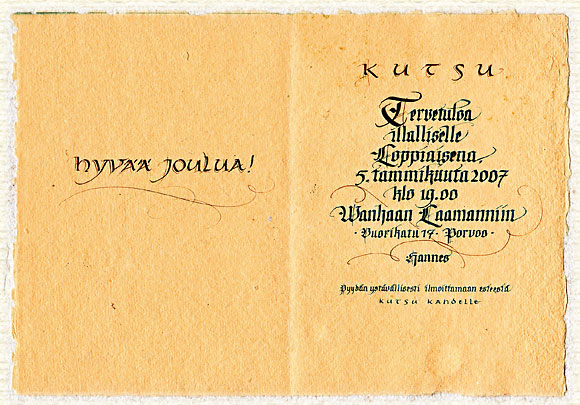 HYVÄÄ JOULUA!
KUTSU
Tervetuloa
illalliselle
Loppiaisena,
5. tammikuuta 2007
klo 19.00
Wanhaan Laamanniin
· Vuorikatu 17 · Porvoo ·
Hannes
Pyydän ystävällisesti ilmoittamaan esteestä
KUTSU KAHDELLE